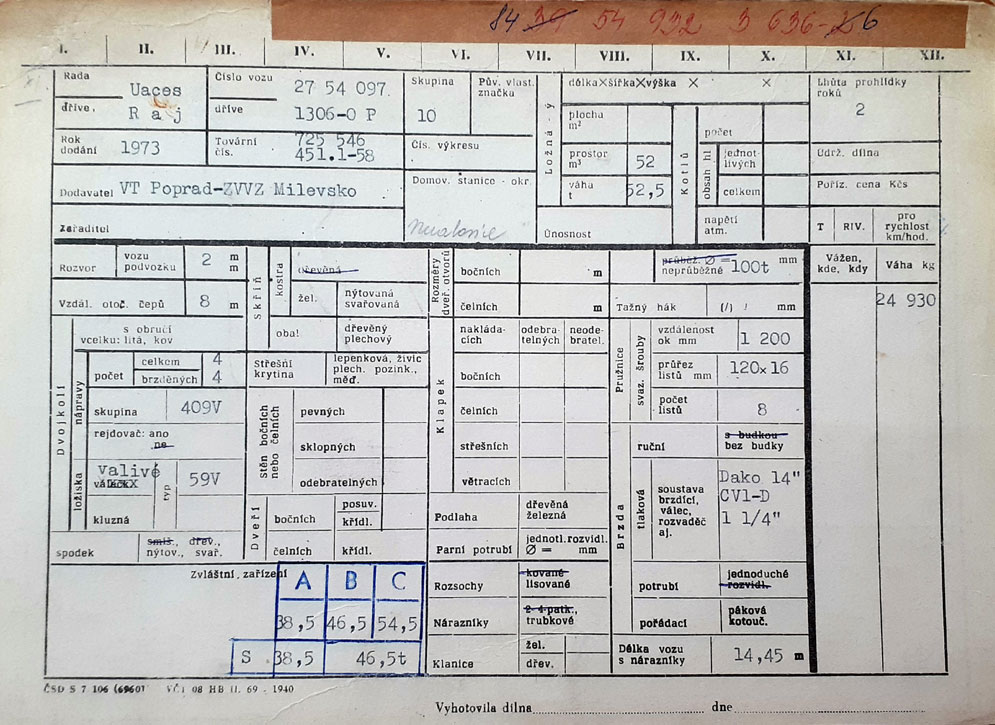 84 39 54 932 3 636-26
I. II. III. IV. V. VI. VII. VIII. IX. X. XI. XII.
Řada Uaces
dříve, R a j
Číslo vozu 27 54 097.
dříve 1306-0 P
Skupina
10
Pův. vlast.
značka
Rok
dodání 1973
Tovární
čís. 725 546
451.1-58
Čís. výkresu
Dodavatel VT Poprad-ZVVZ Milevsko
Domov. stanice - okr.
Zařaditel
Ložná - ý
délka×šířka×výška × ×
plocha
m²
prostor
m³ 52
váha
t 52,5
Únosnost
Kotlů
počet
obsah hl
jednot-
livých
celkem
napětí
atm.
Lhůta prohlídky
roků
2
Údrž. dílna
Poříz. cena Kčs
T RIV. pro
rychlost
km/hod.
Rozvor vozu
podvozku 2 m
m
Vzdál. otoč. čepů 8 m
Dvojkolí
s obručí
vcelku: litá, kov
nápravy
počet
celkem 4
brzděných 4
skupina 409V
rejdovač: ano
ne
ložiska
valivé
válečk
typ 59V
kluzná
spodek smíš., dřev.,
nýtov., svař.
Skříň
kostra
dřevěná
žel. nýtovaná
svařovaná
obal dřevěný
plechový
Střešní
krytina
lepenková, živic
plech. pozink.,
měď.
Stěn bočních
nebo čelních
pevných
sklopných
odebratelných
Dveří
bočních posuv.
křídl.
čelních křídl.
Zvláštní, zařízení
A B C
38,5 46,5 54,5
S 38,5 46,5t
Rozměry
dveř. otvorů
bočních m
čelních m
Klapek
nakláda-
cích
odebra-
telných
neode-
bratel.
bočních
čelních
střešních
větracích
Podlaha dřevěná
železná
Parní potrubí jednotl. rozvidl.
Ø = mm
Rozsochy kované
lisované
Nárazníky 2-4 patk.,
trubkové
Klanice žel.
dřev.
průběž. Ø =
neprůběžné 100t mm
Tažný hák (/) / mm
Pružnice
svaz. šrouby
vzdálenost
ok mm 1 200
průřez
listů mm 120×16
počet
listů 8
Brzda
ruční s budkou
bez budky
tlaková
soustava
brzdící,
válec,
rozvaděč
aj.
Dako 14"
CV1-D
1 1/4"
potrubí jednoduché
rozvidl.
pořádací páková
kotouč.
Délka vozu
s nárazníky 14,45 m
Vážen,
kde, kdy
Váha kg
24 930
ČSD S 7 106 (6960) VČT 08 HB II. 69 - 1940
Vyhotovila dílna dne